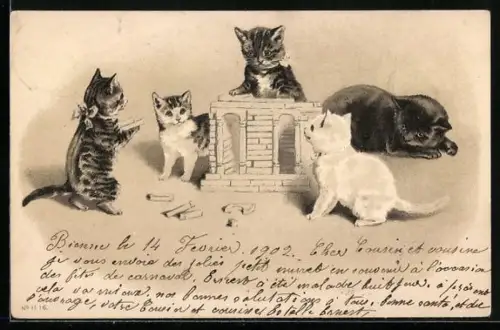 Bienne le 14 Fevrier, 1902. Cher Cousin et cousine
je vous envoie des jolies petit minet en souvenir à l'occasion
des fêts de carnaval. Ernest à été malade huit jour, à présent
cela va mieux, nos bonnes salutations à tous, bonne santé, et du
courage, votre Cousin et cousine Ernest.